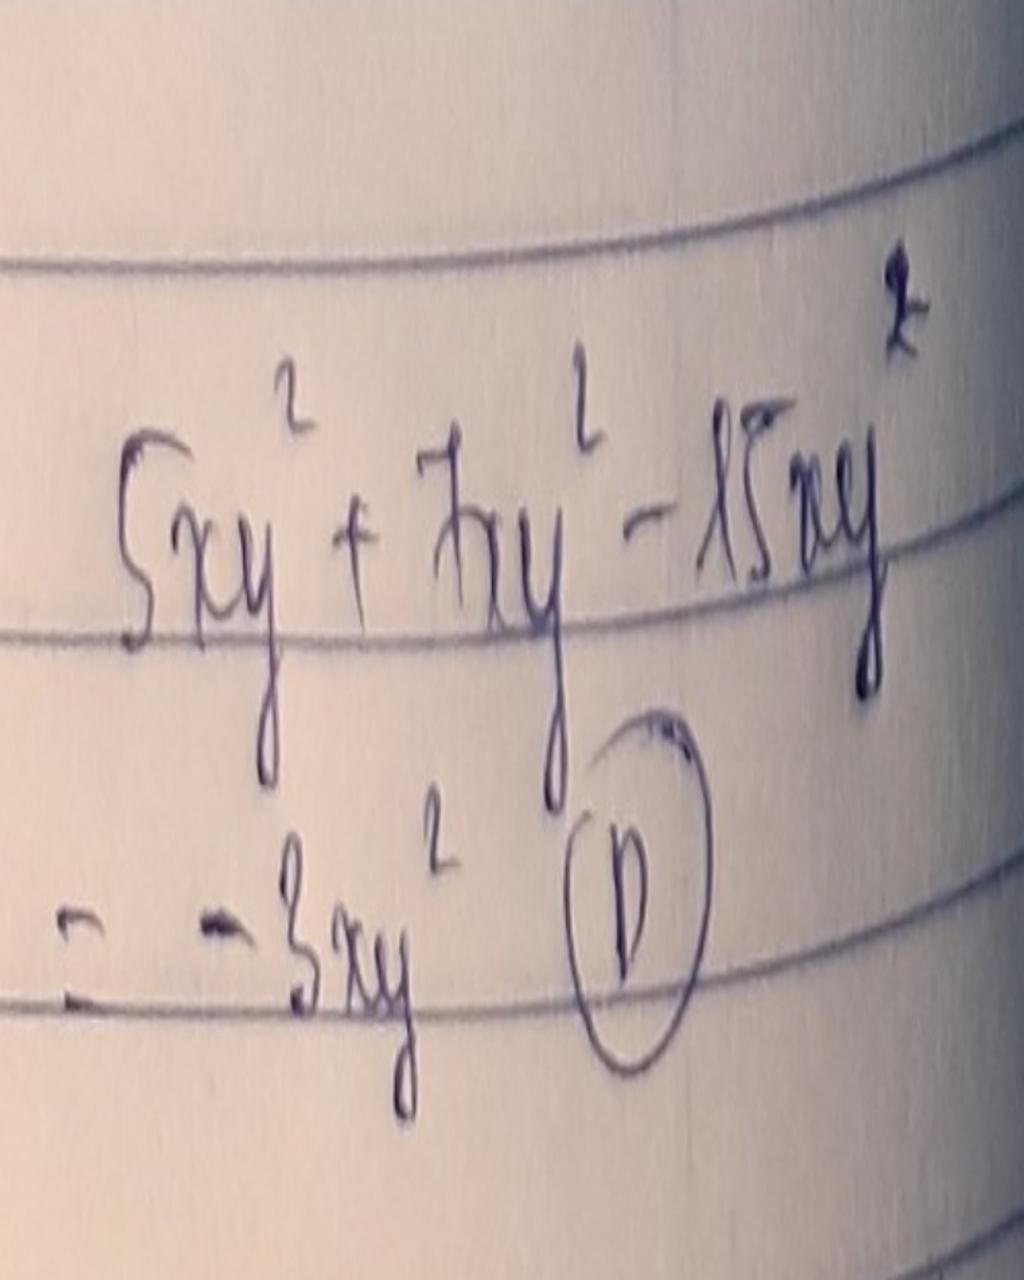 5xy² + 7xy² - 15xy²
= -3xy² D